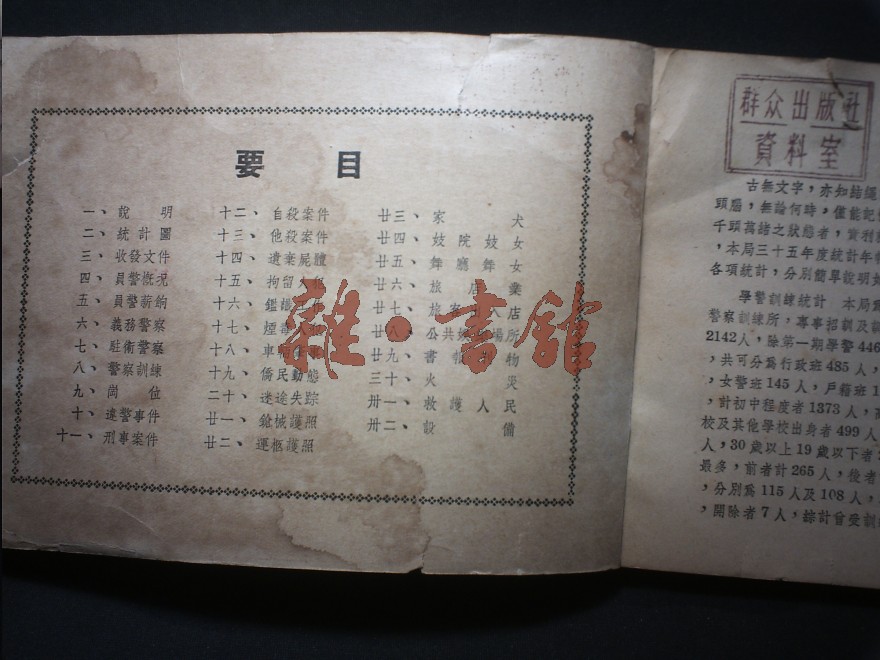 要目
一、說明
二、統計圖
三、收發文件
四、員警概況
五、員警薪餉
六、義務警察
七、駐衛警察
八、警察訓練
九、崗位
十、違警事件
十一、刑事案件
十二、自殺案件
十三、他殺案件
十四、遺棄屍體
十五、拘留人
十六、鑑識
十七、煙毒人
十八、車輛
十九、僑民動態
二十、迷途失踪
廿一、鎗械護照
廿二、運柩護照
廿三、家犬
廿四、妓院妓女
廿五、舞廳舞女
廿六、旅店業
廿七、旅客店
廿八、公共場所
廿九、書報物
三十、火災
卅一、救護人民
卅二、設備
雜·書館
群众出版社
資料室
古無文字,亦知結繩
頭腦,無論何時,僅能記
千頭萬緒之狀態者,實利
,本局三十五年度統計年
各項統計,分別簡單說明如
學警訓練統計 本局爲
警察訓練所,專事招訓及訓
2142人,除第一期學警446
,共可分爲行政班485人,
,女警班145人,戶籍班1
,計初中程度者1373人,高
校及其他學校出身者499人
人,30歲以上19歲以下者
最多,前者計265人,後者
,分別爲115人及108人,
,開除者7人,綜計曾受訓